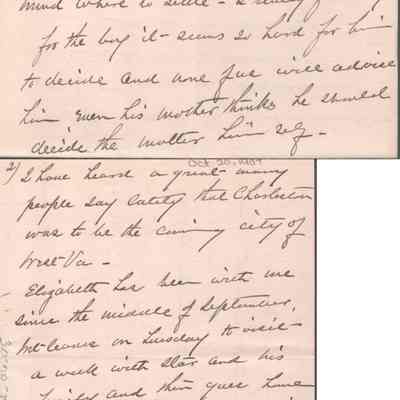 mind where to settle -
for the boy it - seems so hard for him
to decide and none of us will advise
him even his mother thinks he should
decide the matter him self -
Oct. 20, 1907
2) I have heard a great many
people say lately that Charleston
was to be the coming city of
West Va -
Elizabeth has been with me
since the middle of September,
but leaves on Tuesday to visit -
a week with Star and his
family and then goes home